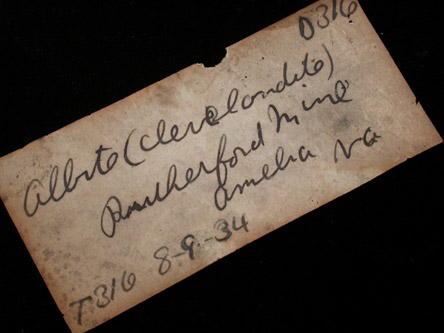 D316
Albite (clevelandite)
Rutherford Mine
Amelia Va
T316 8-9-34